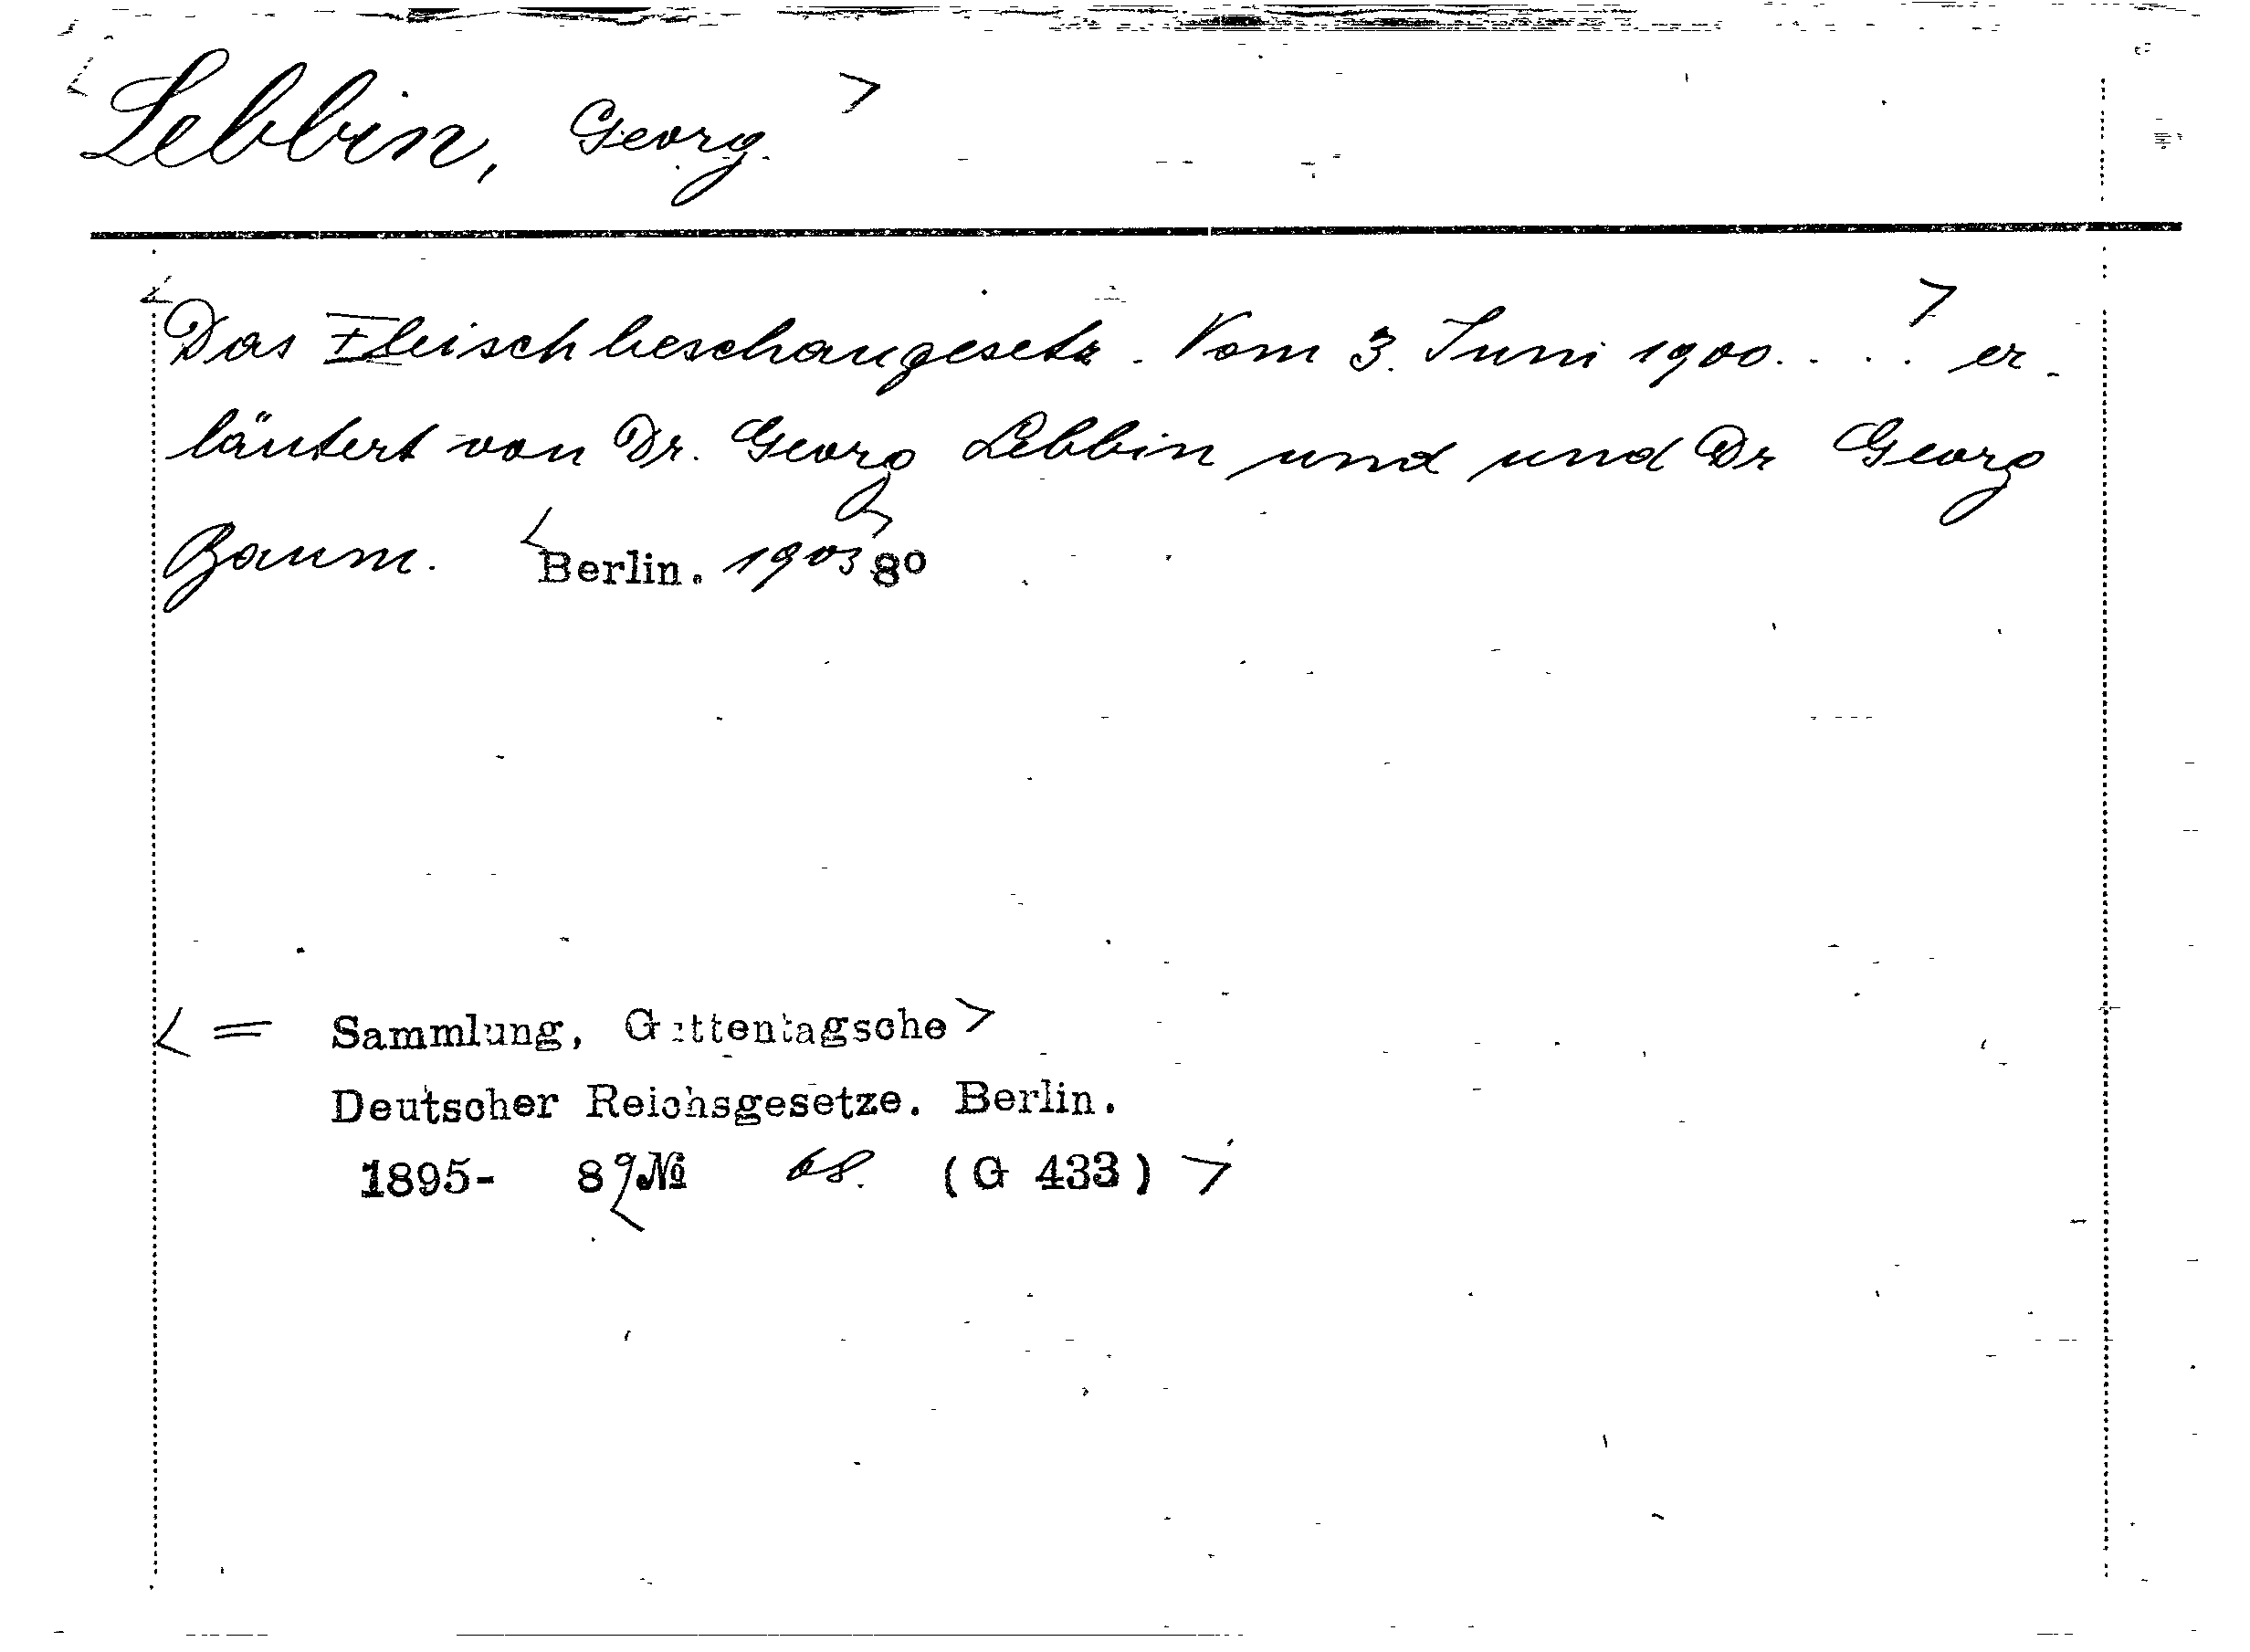 < Lebbin, Georg. >
< Das Fleischbeschaugesetz. Vom 3. Juni 1900. . . . > er-
läutert von Dr. Georg Lebbin und und Dr Georg
Baum. < Berlin. 1903 > 8°
< = Sammlung, Guttentagsche >
Deutscher Reichsgesetze. Berlin.
1895- 8° < № 68. (G 433) >